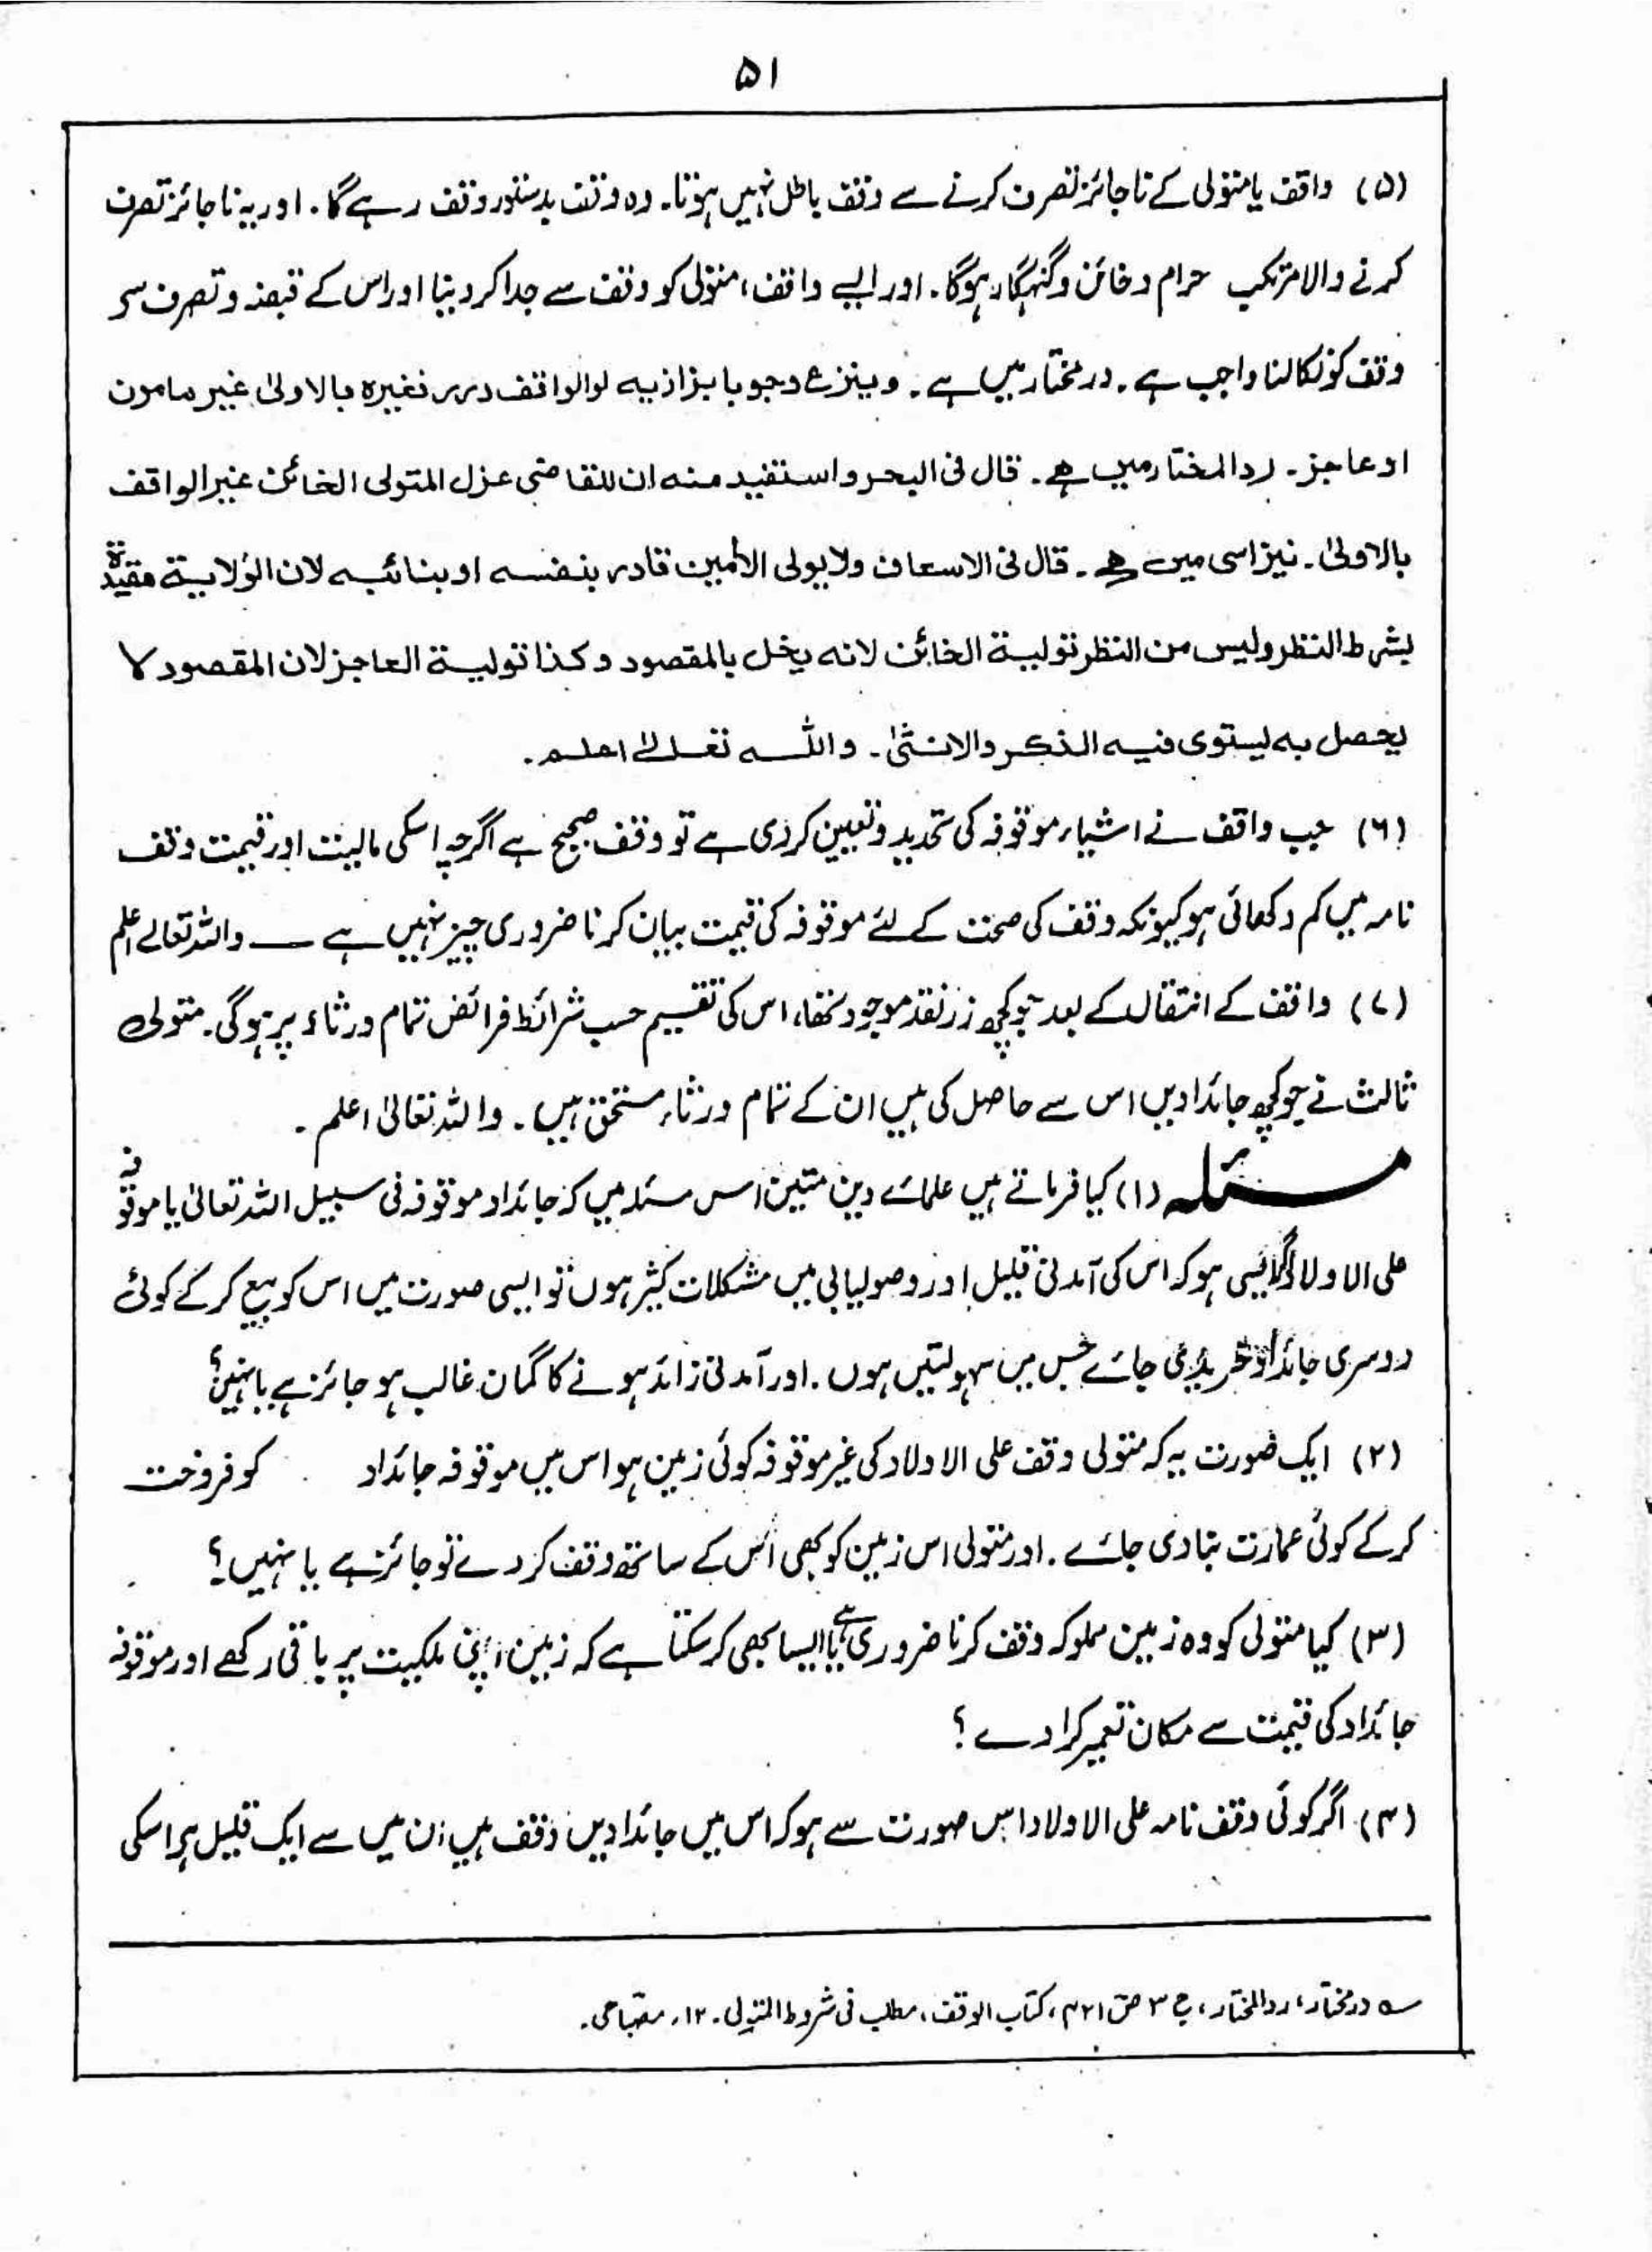 ۵۱
(۵) واقف یا متولی کے ناجائز تصرف کرنے سے وقف باطل نہیں ہوتا۔ وہ وقف بدستور وقف رہے گا۔ اور یہ ناجائز تصرف
کرنے والا مرتکب حرام و خائن و گنہگار ہوگا۔ اور ایسے واقف، متولی کو وقف سے جدا کر دینا اور اس کے قبضہ و تصرف سے
وقف کو نکالنا واجب ہے۔ درمختار میں ہے۔ وینزع وجوبا بزازیہ لوالواقف درر فغیرہ بالاولیٰ غیر مامون
اوعاجز۔ ردالمختار میں ہے۔ قال فی البحر واستفید منہ ان للقاضی عزل المتولی الخائن غیر الواقف
بالاولیٰ۔ نیز اسی میں ہے۔ قال فی الاسعاف ولا یولی الا امین قادر بنفسہ او بنائبہ لان الولایۃ مقیدۃ
بشرط النظر ولیس من النظر تولیۃ الخائن لانہ یخل بالمقصود وکذا تولیۃ العاجز لان المقصود لا
یحصل بہ لیستوی فیہ الذکر والانثیٰ۔ واللہ تعالےٰ اعلم۔
(۶) جب واقف نے اشیاء موقوفہ کی تحدید و تعیین کر دی ہے تو وقف صحیح ہے اگرچہ اسکی مالیت اور قیمت وقف
نامہ میں کم دکھائی ہو کیونکہ وقف کی صحت کے لئے موقوفہ کی قیمت بیان کرنا ضروری چیز نہیں ہے — واللہ تعالے اعلم
(۷) واقف کے انتقال کے بعد جو کچھ زر نقد موجود تھا، اس کی تقسیم حسب شرائط فرائض تمام ورثاء پر ہوگی۔ متولی
ثالث نے جو کچھ جائدادیں اس سے حاصل کی ہیں ان کے تمام ورثاء مستحق ہیں۔ واللہ تعالیٰ اعلم۔
مسئلہ (۱) کیا فرماتے ہیں علمائے دین متین اس مسئلہ میں کہ جائداد موقوفہ فی سبیل اللہ تعالیٰ یا موقوفہ
علی الاولاد اگر ایسی ہو کہ اس کی آمدنی قلیل اور وصولیابی میں مشکلات کثیر ہوں تو ایسی صورت میں اس کو بیع کر کے کوئی
دوسری جائداد خریدی جائے جس میں سہولتیں ہوں۔ اور آمدنی زائد ہونے کا گمان غالب ہو جائز ہے یا نہیں؟
(۲) ایک صورت یہ کہ متولی وقف علی الاولاد کی غیر موقوفہ کوئی زمین ہو اس میں موقوفہ جائداد کو فروخت
کر کے کوئی عمارت بنا دی جائے۔ اور متولی اس زمین کو بھی اس کے ساتھ وقف کر دے تو جائز ہے یا نہیں؟
(۳) کیا متولی کو وہ زمین مملوکہ وقف کرنا ضروری ہے یا ایسا بھی کر سکتا ہے کہ زمین اپنی ملکیت پر باقی رکھے اور موقوفہ
جائداد کی قیمت سے مکان تعمیر کرا دے؟
(۴) اگر کوئی وقف نامہ علی الاولاد اس صورت سے ہو کہ اس میں جائدادیں وقف ہیں ان میں سے ایک قلیل ہر اسکی
ـہ درمختار، ردالمختار، ج ۳ ص ۴۲۱، کتاب الوقف، مطلب فی شروط المتولی۔ ۱۲، مصباحی۔